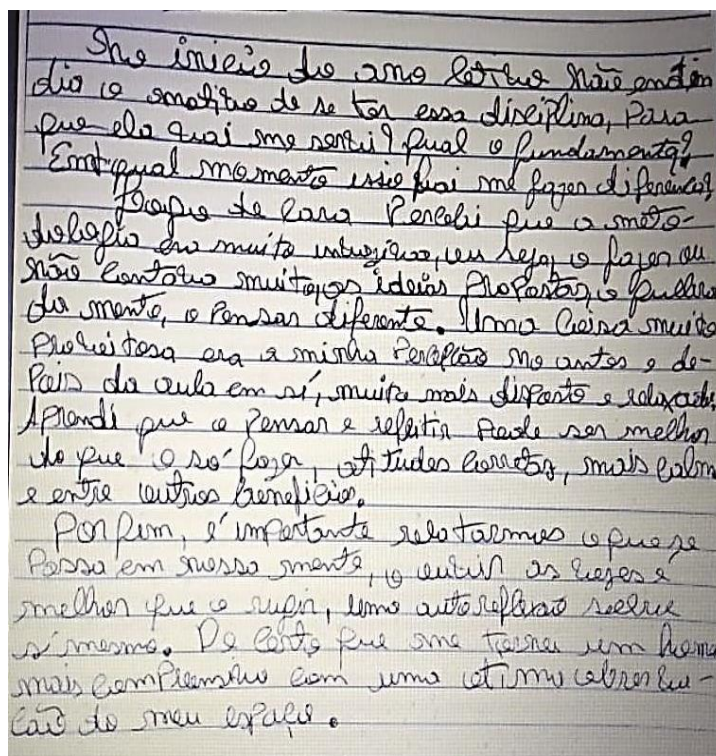 No inicio do ano letivo não enten
dia o motivo de se ter essa disciplina, Para
que ela vai me servir? qual o fundamento?
Em qual momento isso vai me fazer diferença?
Logo de cara Percebi que a meto-
dologia era muito intuitiva, ou seja, o fazer ou
não contava muito, as ideias Propostas, o
da mente, o Pensar diferente. Uma Coisa muito
Proveitosa era a minha Percepção no antes e de-
Pois da aula em sí, muito mais disposto e relaxado,
Aprendi que o Pensar e refletir Pode ser melhor
do que o só fazer, atitudes Corretas, mais Calm
e entre outros benefícios.
Por fim, é importante relatarmos o que se
Passa em nossa mente, o ouvir as vezes é
melhor que o rugir, uma autoreflexão sobre
sí mesmo. De Certo que me tornei um home
mais Compreensivo com uma otima observa-
ção do meu espaço.